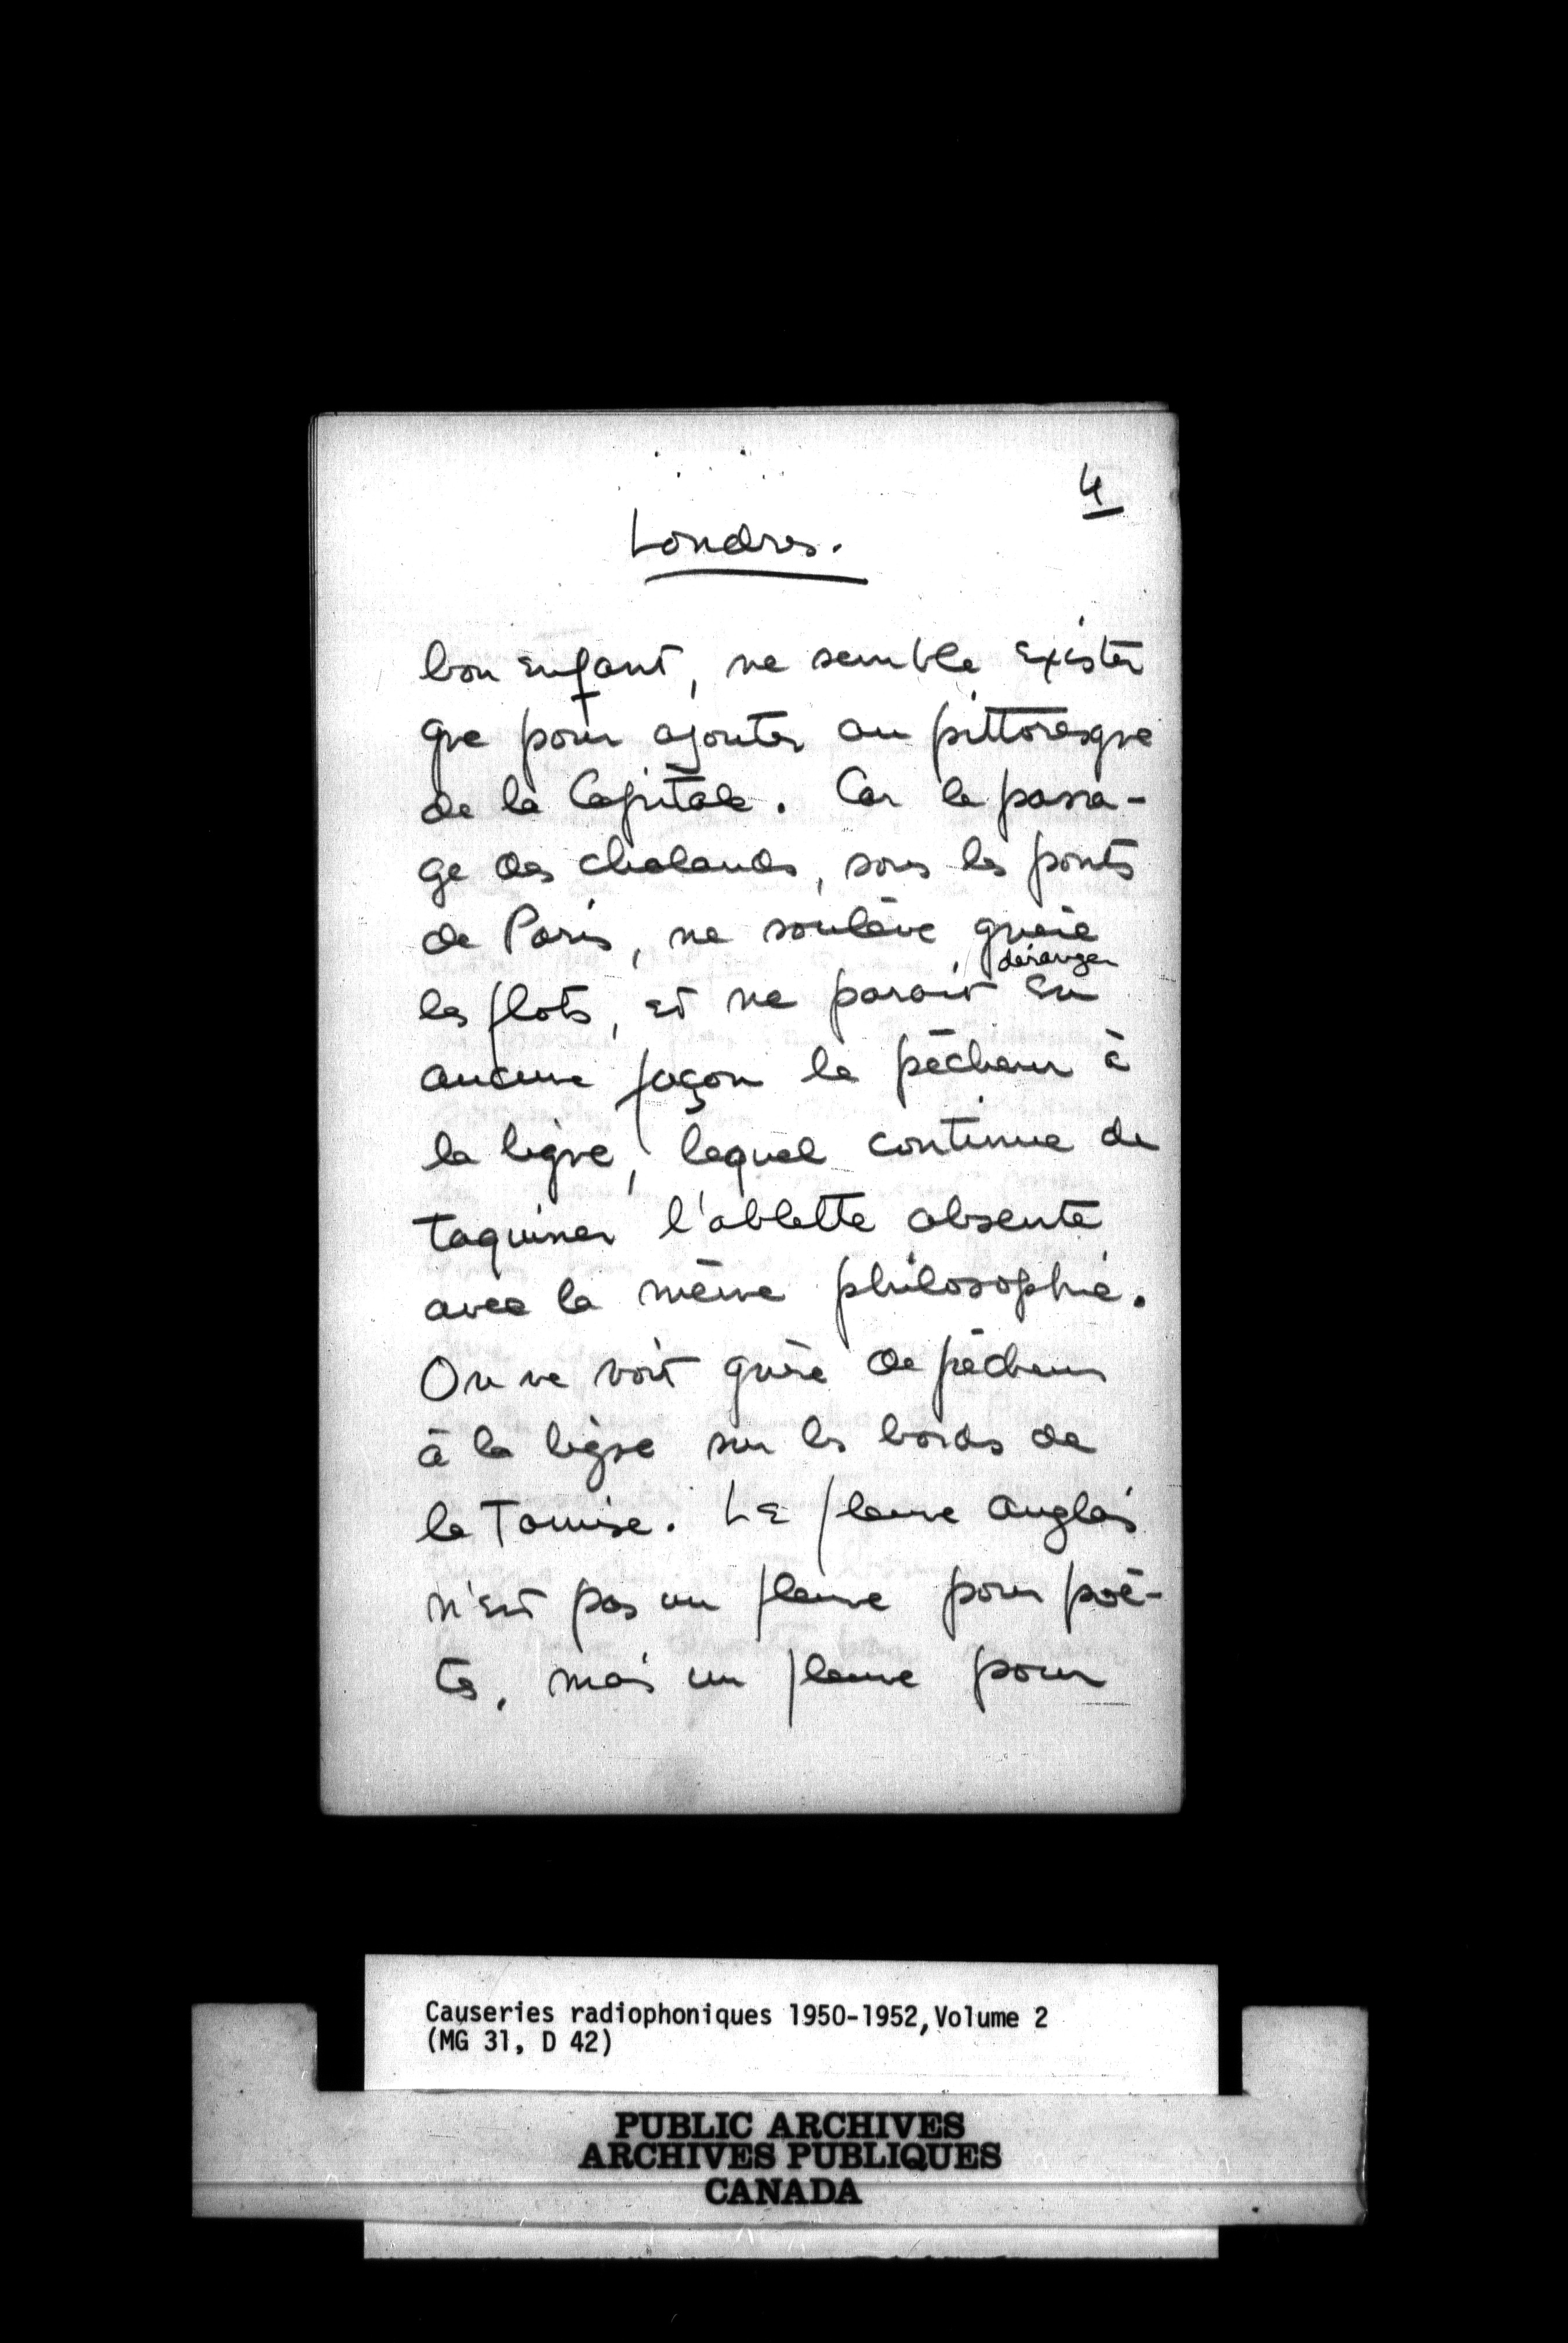 4
Londres.
bon enfant, ne semble exister
que pour ajouter au pittoresque
de la Capitale. Car le passa-
ge des chalands, sous les ponts
de Paris, ne soulève guère
déranger
les flots, et ne parait en
aucune façon le pêcheur à
la ligne, lequel continue de
taquiner l'ablette absente
avec la même philosophie.
On ne voit guère de pêcheurs
à la ligne sur les bords de
la Tamise. Le fleuve anglais
n'est pas un fleuve pour poè-
tes, mais un fleuve pour
Causeries radiophoniques 1950-1952, Volume 2
(MG 31, D 42)
PUBLIC ARCHIVES
ARCHIVES PUBLIQUES
CANADA